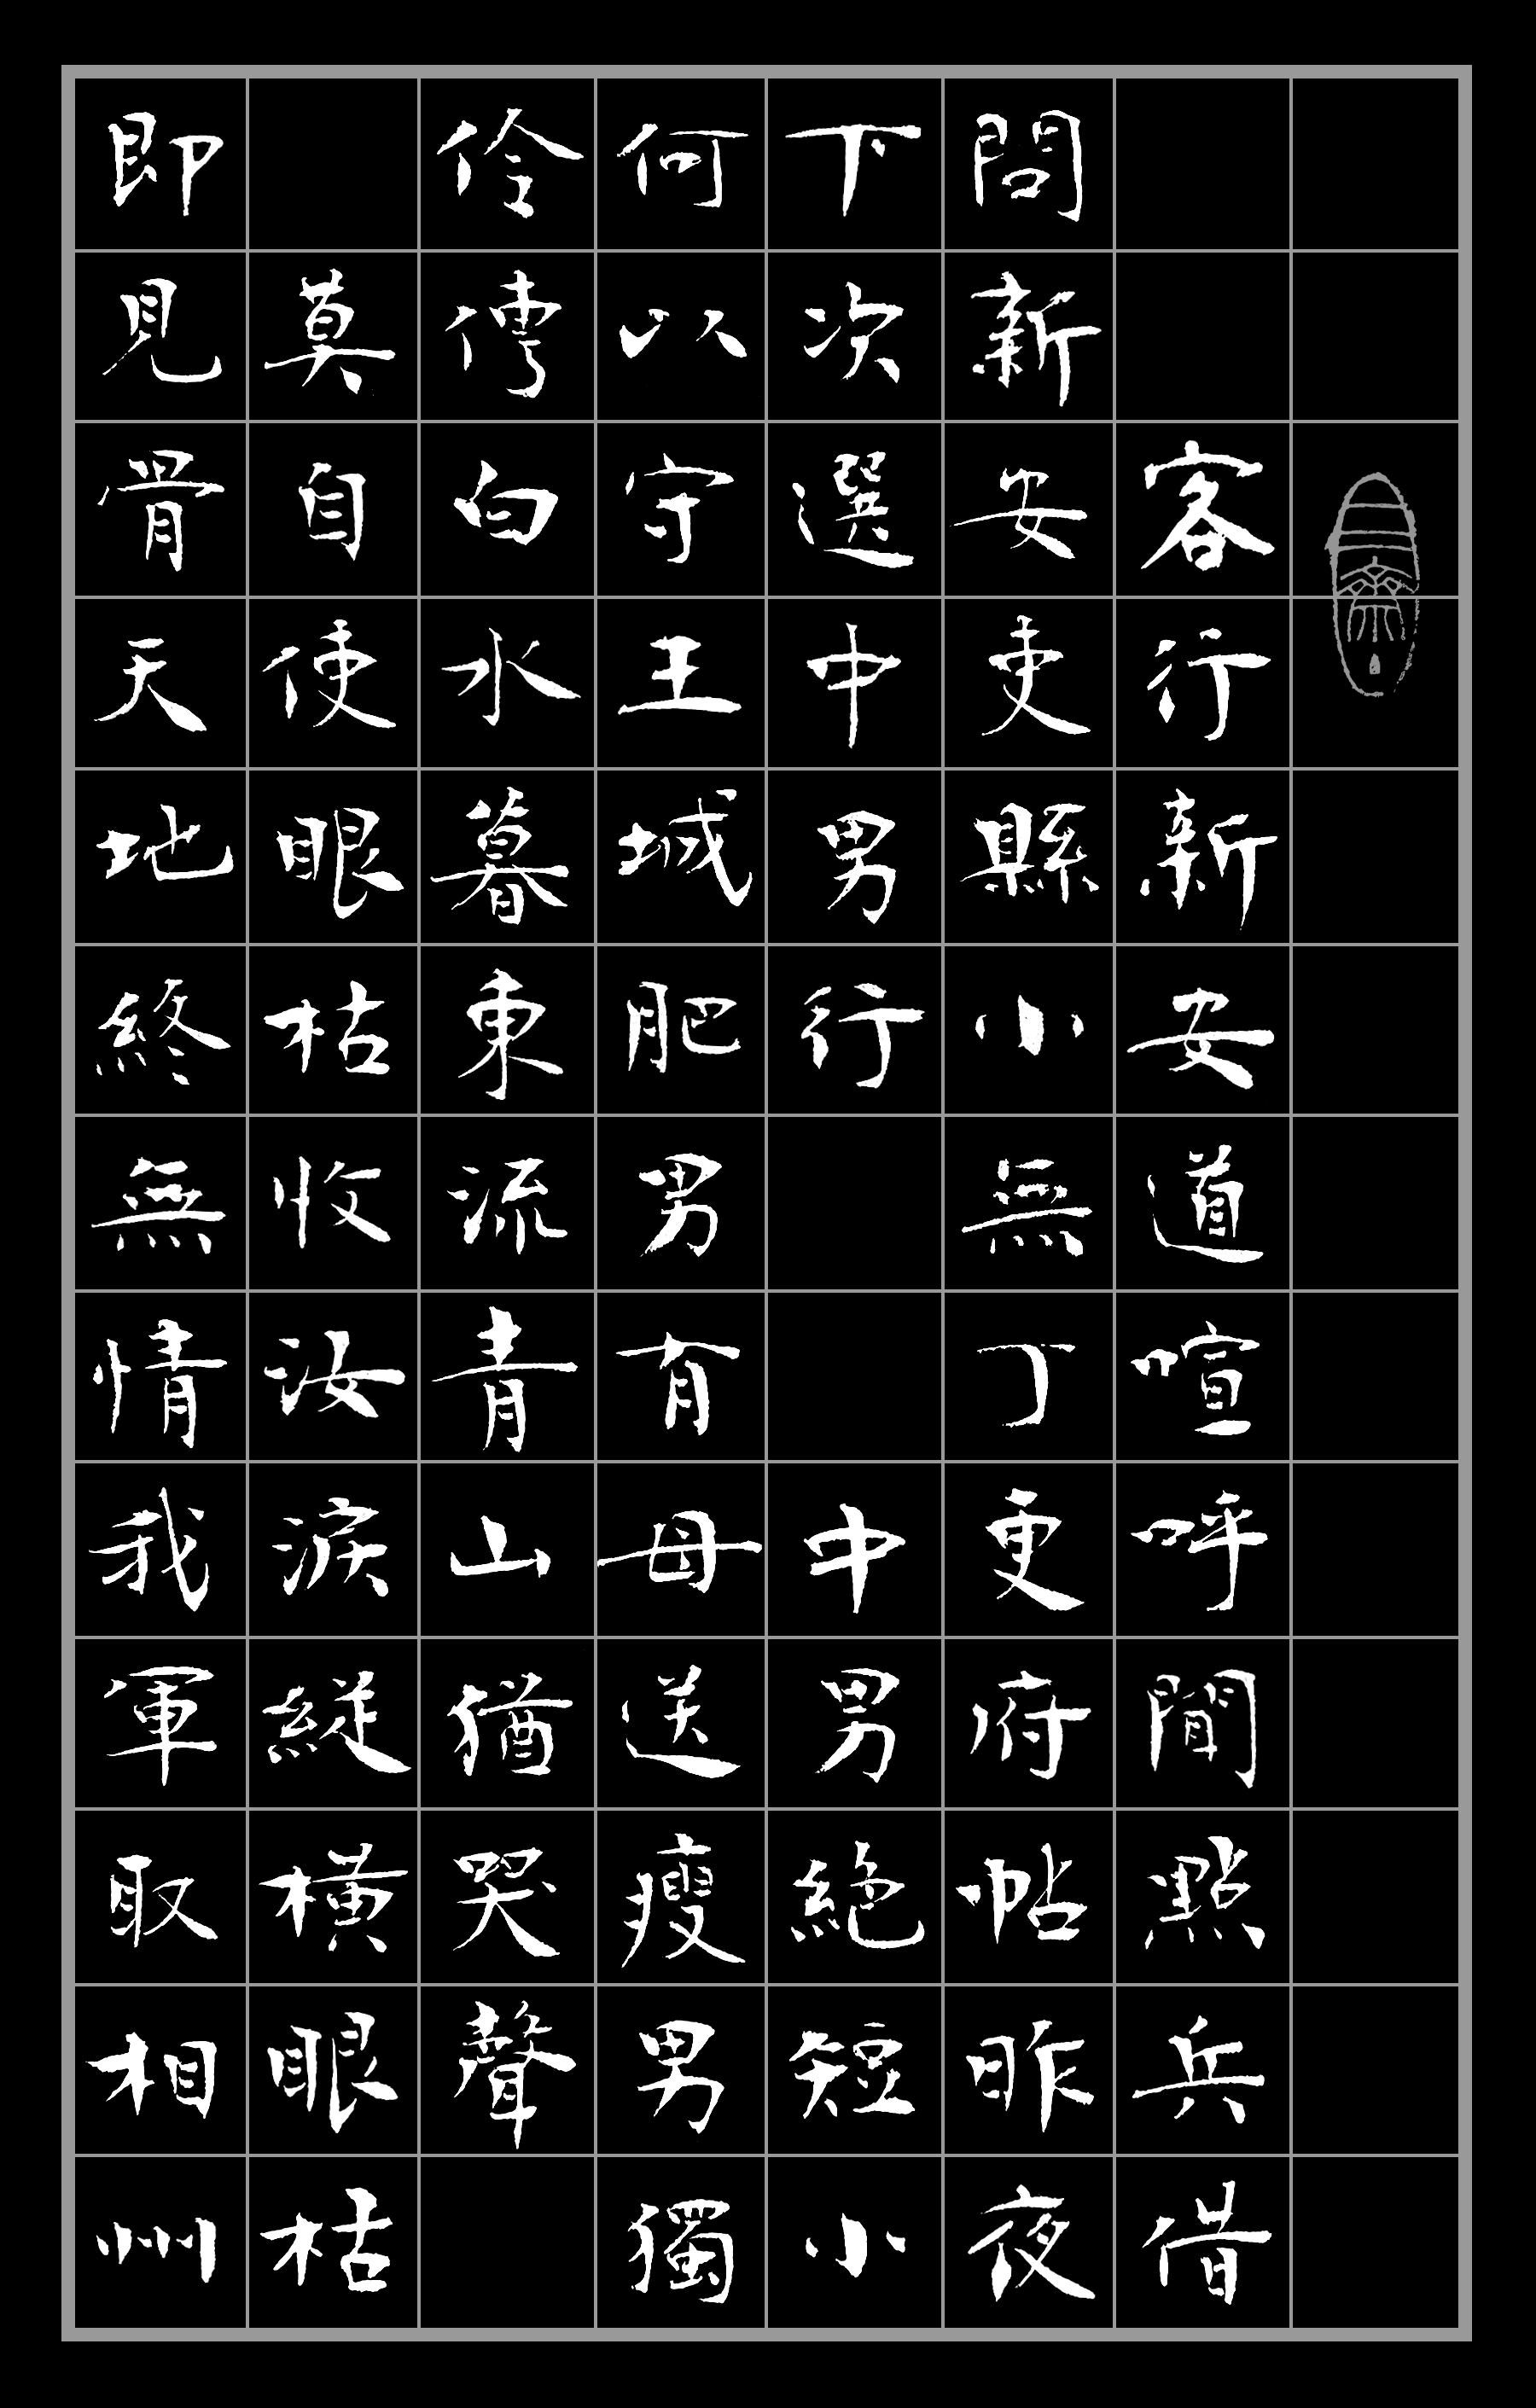 客行新安道喧呼聞點兵借
問新安吏縣小無丁更府帖昨夜
下次選中男行 中男絕短小
何以守王城肥男有母送瘦男獨
伶俜白水暮東流青山猶哭聲
莫自使眼枯收汝淚縱橫眼枯
即見骨天地終無情我軍取相州